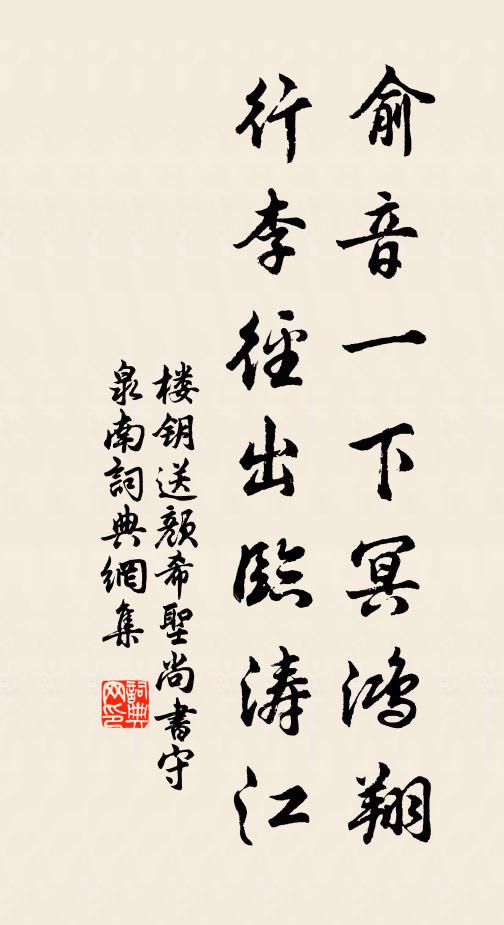 俞音一下冥鸿翔
行李徑出臨涛江
楼钥送颜希聖尚書守
泉南詞典網集
詞典网印